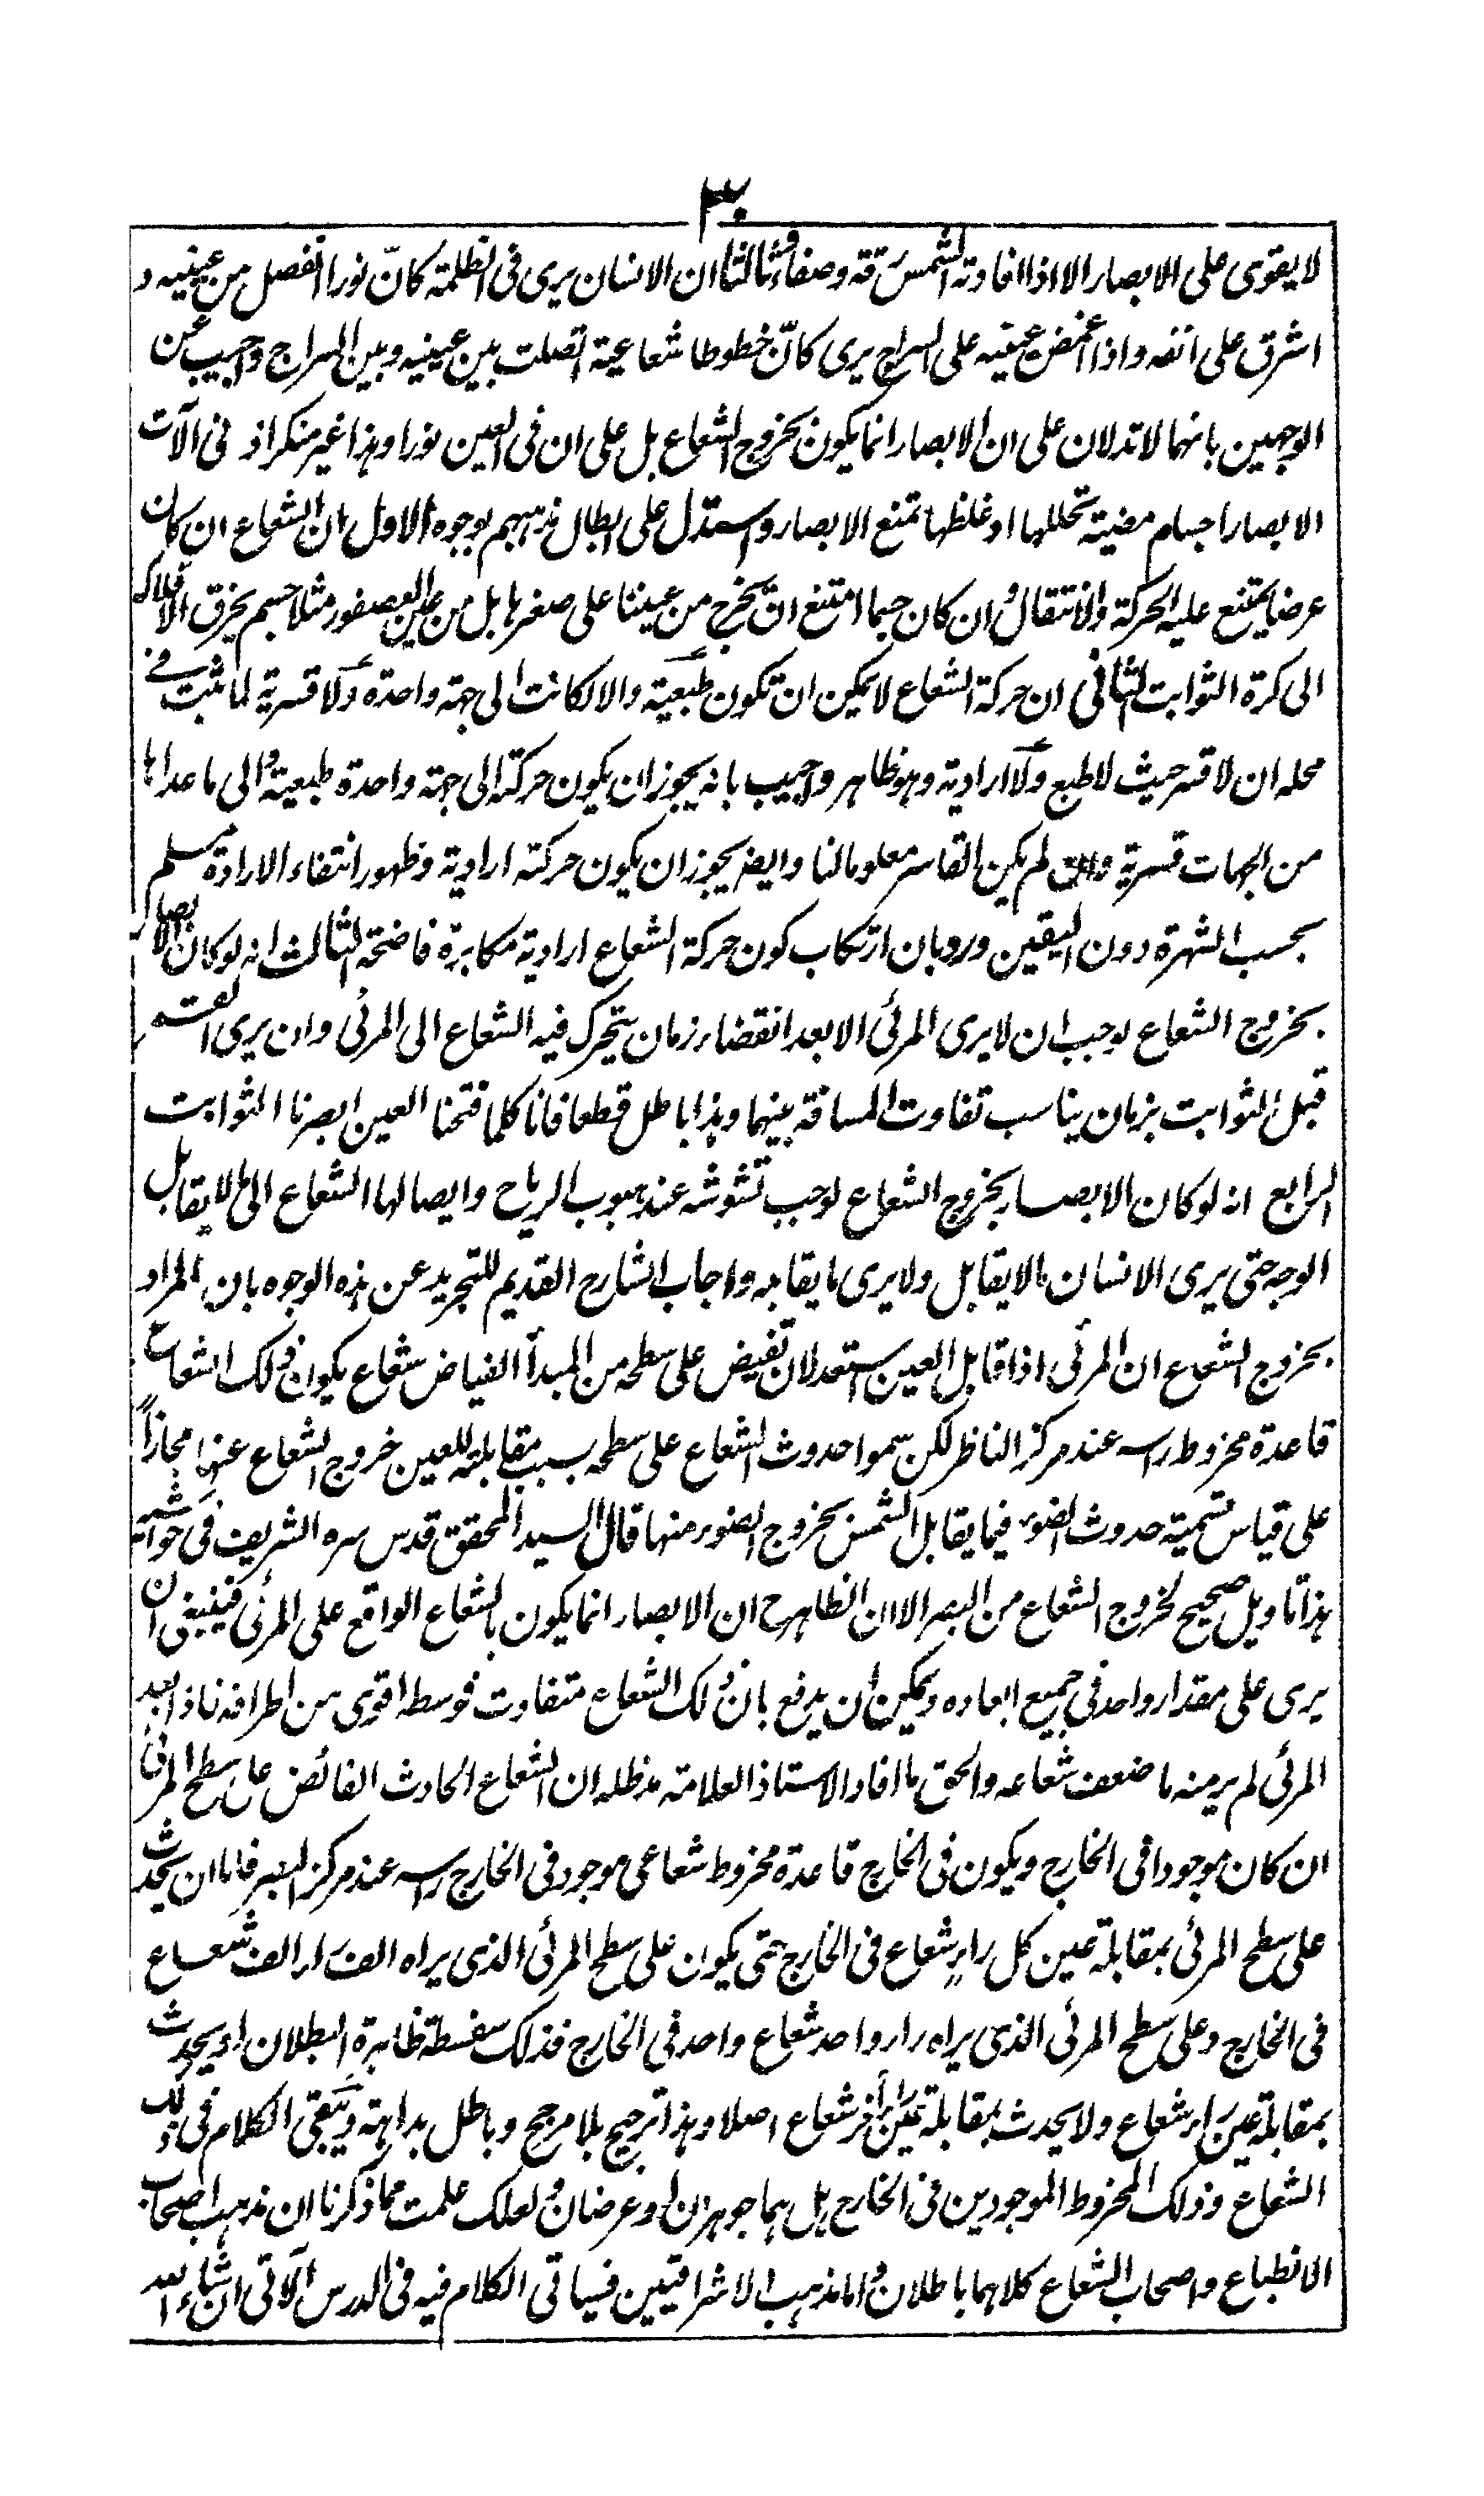 ٣٠
لا يقوى على الابصار الا اذا افادته الشمس رقة وصفاء وثالثا ان الانسان يرى فى الظلمة كانّ نورا انفصل من عينيه و
اشرق على انفه واذا اغمض عينيه على السراج يرى كانّ خطوطا شعاعية اتصلت بين عينيه وبين السراج واجيب عن
الوجهين بانهما لا تدلان على ان الابصار انما يكون بخروج الشعاع بل على ان فى العين نورا وهذا غير منكر اذ فى آلات
الابصار اجسام مضيئة تحللها او غلظها تمنع الابصار واستدل على ابطال مذهبهم بوجوه الاول ان الشعاع ان كان
عرضا يمتنع عليه الحركة والانتقال وان كان جسما امتنع ان يخرج من عيننا على صغرها بل من عين العصفور مثلا جسم يخرق الافلاك
الى كرة الثوابت الثانى ان حركة الشعاع لا يمكن ان تكون طبعية والا لكانت الى جهة واحدة ولا قسرية لما ثبت فى
محله ان لا قسر حيث لا طبع ولا ارادية وهو ظاهر واجيب بانه يجوز ان يكون حركته الى جهة واحدة طبعية والى ما عداها
من الجهات قسرية وان لم يكن القاسر معلوما لنا وايضا يجوز ان يكون حركته ارادية وظهور انتفاء الارادة مسلم
بحسب الشهرة دون اليقين ورد بان ارتكاب كون حركة الشعاع ارادية مكابرة فاضحة الثالث انه لو كان الابصار
بخروج الشعاع لوجب ان لا يرى المرئى الا بعد انقضاء زمان يتحرك فيه الشعاع الى المرئى وان يرى القمر
قبل الثوابت بزمان يناسب تفاوت المسافة بينهما وهذا باطل قطعا فانا كلما فتحنا العين ابصرنا الثوابت
الرابع انه لو كان الابصار بخروج الشعاع لوجب تشوشه عند هبوب الرياح وايصالها الشعاع الى ما لا يقابل
الوجه حتى يرى الانسان ما لا يقابل ولا يرى ما يقابله واجاب الشارح القديم للتجريد عن هذه الوجوه بان المراد
بخروج الشعاع ان المرئى اذا قابل العين استعد لان تفيض على سطحه من المبدأ الفياض شعاع يكون ذلك الشعاع
قاعدة مخروط راسه عند مركز الناظر لكن سموا حدوث الشعاع على سطحه بسبب مقابلته للعين خروج الشعاع عنها مجازاً
على قياس تسمية حدوث الضوء فيما يقابل الشمس بخروج الضوء منها قال السيد المحقق قدس سره الشريف فى حواشيه
هذا تاويل صحيح لخروج الشعاع من البصر الا ان الظاهر ح ان الابصار انما يكون بالشعاع الواقع على المرئى فينبغى ان
يرى على مقدار واحد فى جميع ابعاده ويمكن ان يدفع بان ذلك الشعاع متفاوت فوسطه اقوى من اطرافه فاذا بعد
المرئى لم ير منه ما ضعف شعاعه والحق ما افاد الاستاذ العلامة مد ظله ان الشعاع الحادث الفائض على سطح المرئى
ان كان موجودا فى الخارج ويكون فى الخارج قاعدة مخروط شعاعى موجود فى الخارج راسه عند مركز البصر فاما ان يحدث
على سطح المرئى بمقابلة عين كل راءٍ شعاع فى الخارج حتى يكون على سطح المرئى الذى يراه الف راء الف شعاع
فى الخارج وعلى سطح المرئى الذى يراه راء واحد شعاع واحد فى الخارج فذلك سفسطة ظاهرة البطلان او يحدث
بمقابلة عين راء شعاع ولا يحدث بمقابلة عين راء آخر شعاع اصلا وهذا ترجيح بلا مرجح وباطل بداهة ويبقى الكلام فى ذلك
الشعاع وذلك المخروط الموجودين فى الخارج هل هما جوهران او عرضان ولعلك علمت مما ذكرنا ان مذهب اصحاب
الانطباع واصحاب الشعاع كلاهما باطلان واما مذهب الاشراقيين فسياتى الكلام فيه فى الدرس الآتى ان شاء الله